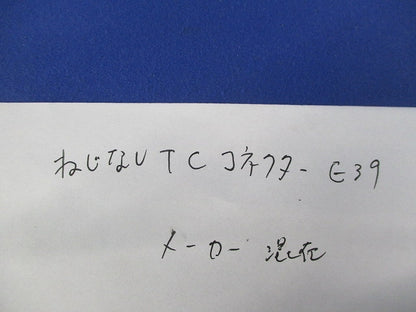 ねじなしTCコネクター E39
メーカー 混在